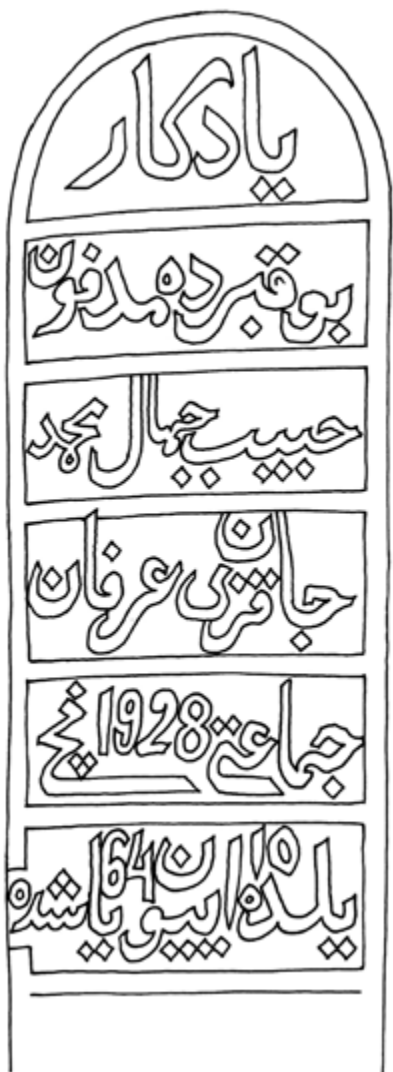 يادكار
بو قبرده مدفون
حبيب جهال محمد
جان قزى عرفان
جماعتى 1928 نچى
يلده 10 اييون 64 ياشده